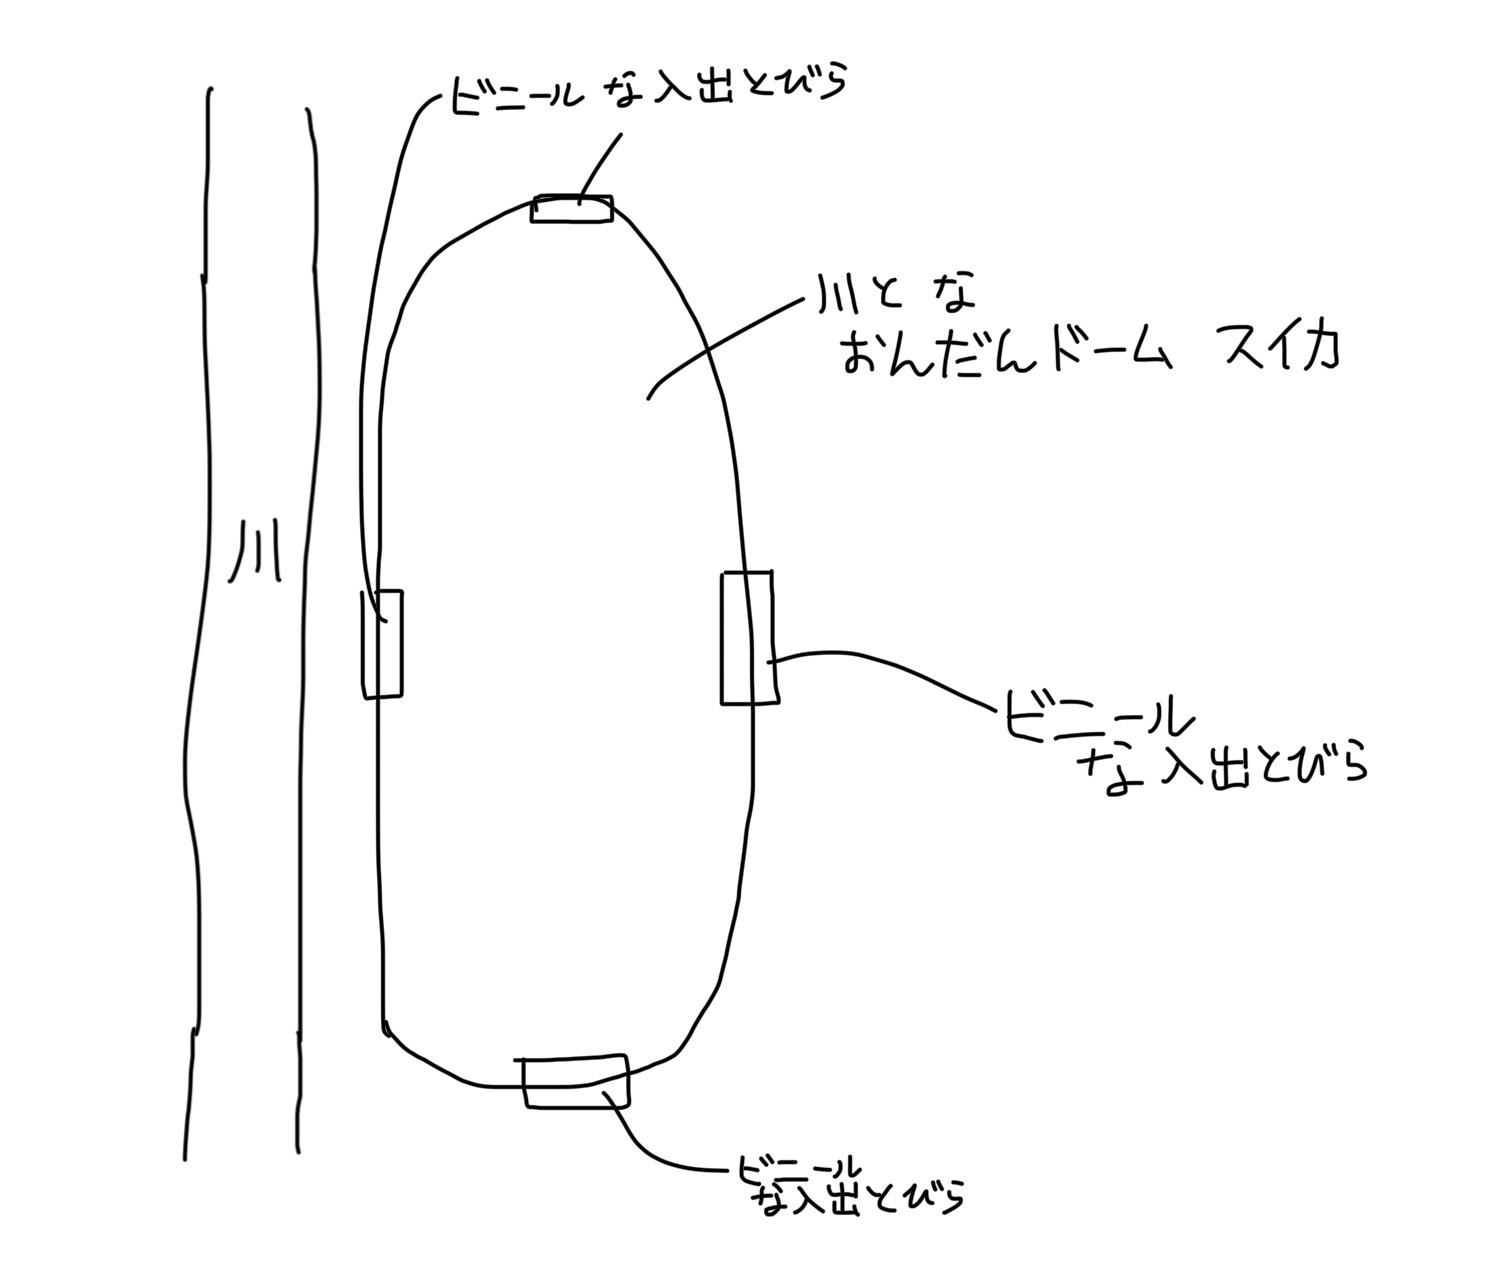 ビニール な入出とびら
川と な
おんだんドーム スイカ
川
ビニール
な入出とびら
ビニール
な入出とびら